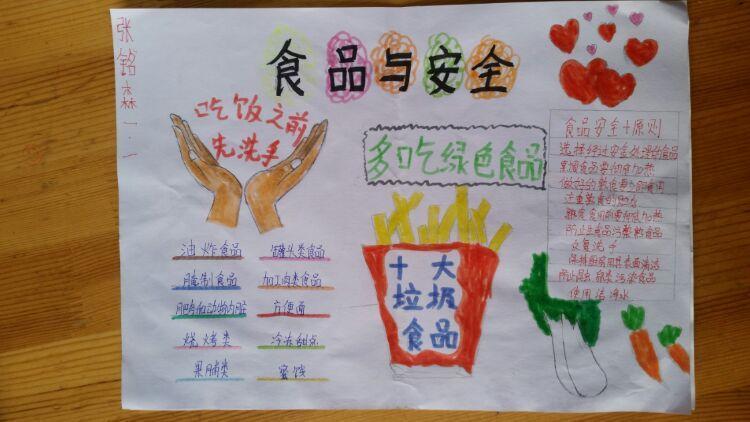 张铭森一.一
食品与安全
吃饭之前
先洗手
多吃绿色食品
油炸食品
罐头类食品
腌制食品
加工肉类食品
肥肉和动物内脏
方便面
烧烤类
冷冻甜点
果脯类
蜜饯
十大
垃圾
食品
食品安全十原则
选择经过安全处理的食品
果馔食品要彻底加热
做好的熟食要立即食用
注意熟食的贮存
熟食食用前要彻底加热
防止生食品污染熟食品
反复洗手
保持厨房用具表面清洁
防止昆虫鼠类污染食品
使用洁净水